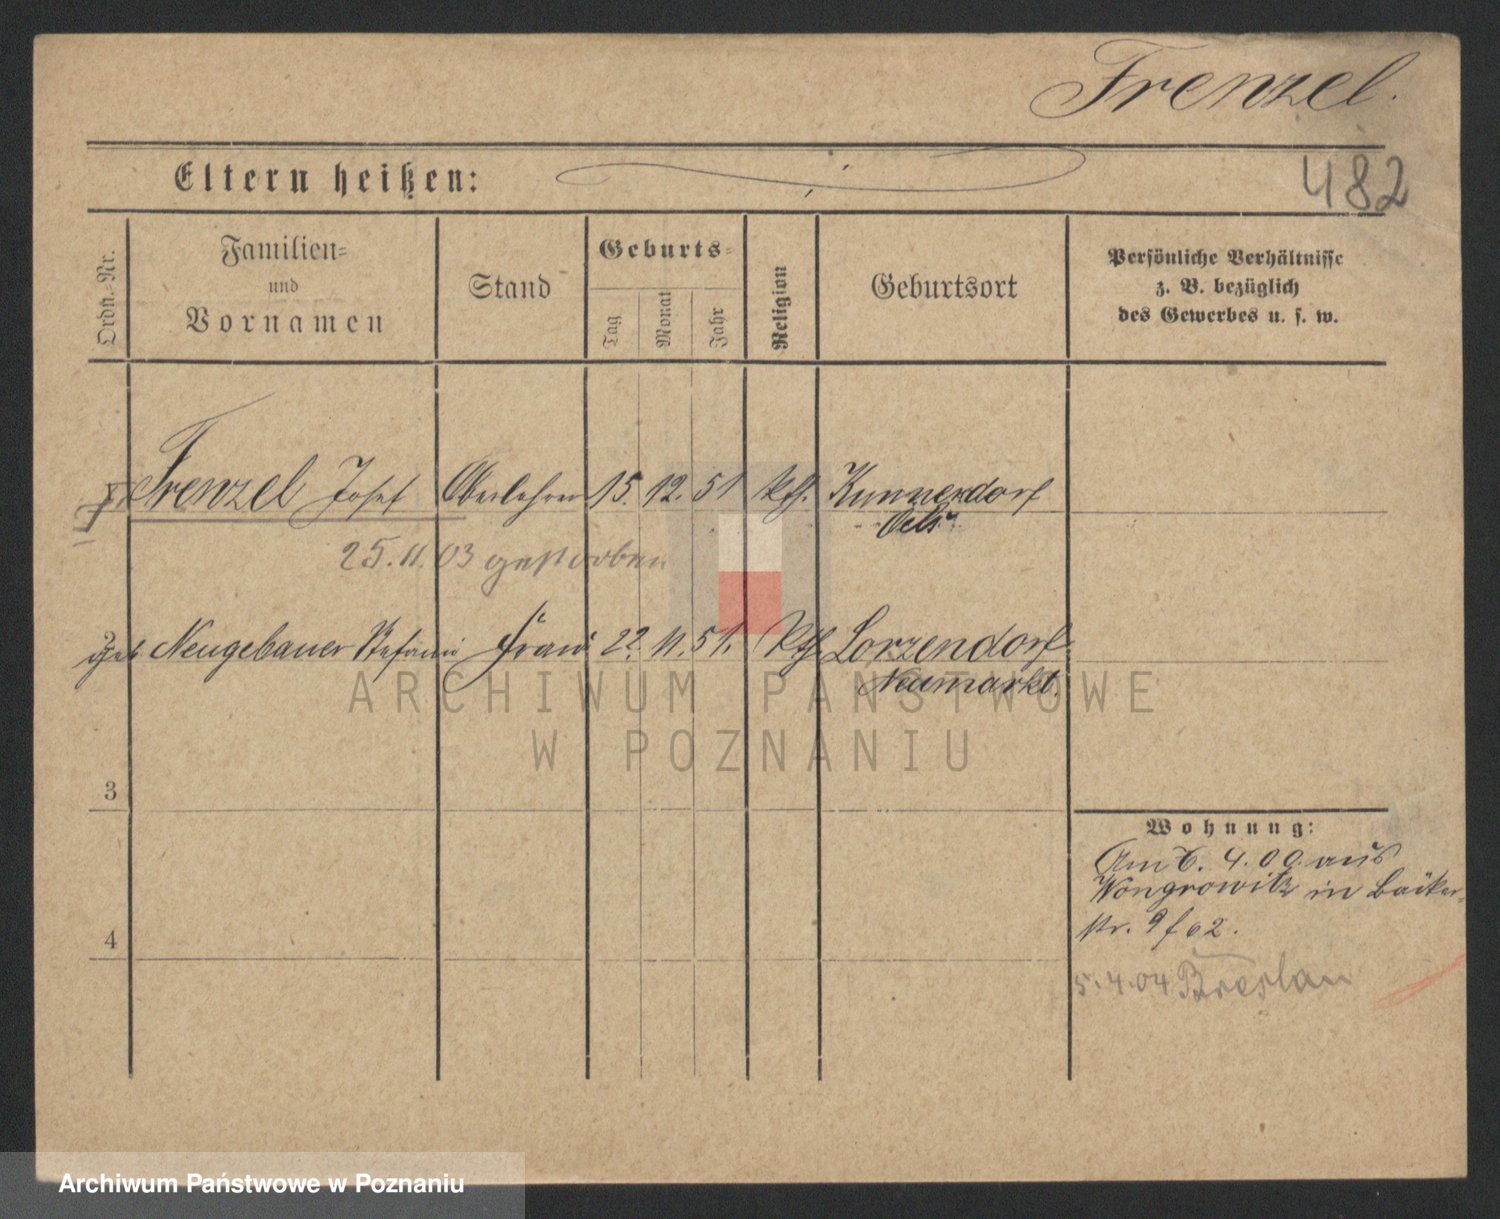 Frenzel.
482
Eltern heißen:
Ordn.-Nr.
Familien-
und
Vornamen
Stand
Geburts-
Tag
Monat
Jahr
Religion
Geburtsort
Persönliche Verhältnisse
z. B. bezüglich
des Gewerbes u. s. w.
Frenzel Josef Oberlehrer 15. 12. 51 kth. Kunnerdorf
Oels
25.11.03 gestorben
2
geb Neugebauer Stefanie Frau 22. 11. 51. kth Lorzendorf
Neumarkt.
ARCHIWUM PAŃSTWOWE
W POZNANIU
3
4
Wohnung:
Am 6. 4. 00. aus
Wongrowitz in Bäcker-
str. 9
5.4.04 Breslau
Archiwum Państwowe w Poznaniu